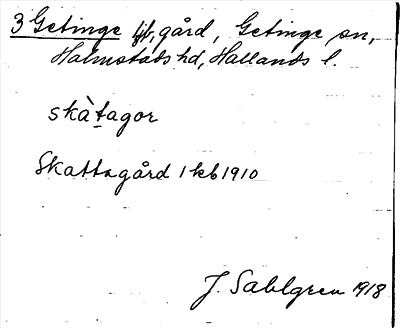 3 Getinge tjb, gård, Getinge sn,
Halmstads hd, Hallands l.
skàt̰agor
Skattagård 1 kb 1910
J. Sahlgren 1918